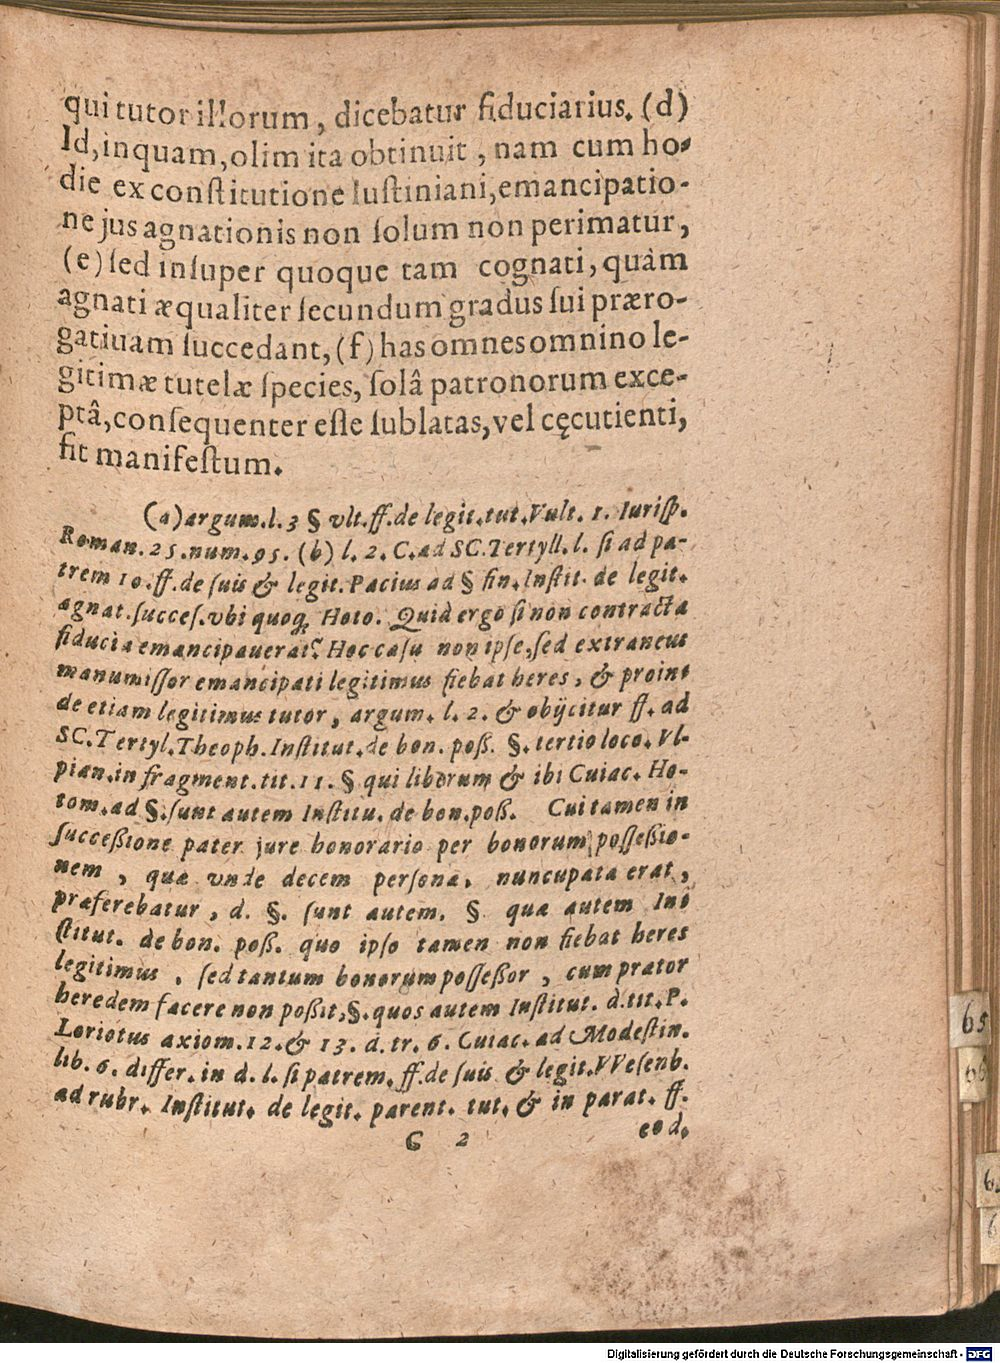 qui tutor illorum, dicebatur fiduciarius. (d)
Id, inquam, olim ita obtinuit, nam cum ho-
die ex conſtitutione Iuſtiniani, emancipatio-
ne jus agnationis non ſolum non perimatur,
(e) ſed inſuper quoque tam cognati, quàm
agnati æqualiter ſecundum gradus ſui præro-
gatiuam ſuccedant, (f) has omnes omnino le-
gitimæ tutelæ ſpecies, ſolâ patronorum exce-
ptâ, conſequenter eſſe ſublatas, vel cęcutienti,
fit manifeſtum.
(a) argum. l. 3 § vlt. ff. de legit. tut. Vult. 1. Iuriſp.
Roman. 25. num. 95. (b) l. 2. C. ad SC. Tertyll. l. ſi ad pa-
trem 10. ff. de ſuis & legit. Pacius ad § fin. Inſtit. de legit.
agnat. ſucceſ. vbi quoq; Hoto. Quid ergo ſi non contracta
fiducia emancipauerat? Hoc caſu non ipſe, ſed extraneus
manumiſſor emancipati legitimus fiebat heres, & proin-
de etiam legitimus tutor, argum. l. 2. & obijcitur ff. ad
SC. Tertyl. Theoph. Inſtitut. de bon. poß. §. tertio loco. Vl-
pian. in fragment. tit. 11. § qui liberum & ibi Cuiac. Ho-
tom. ad §. ſunt autem Inſtitu. de bon. poß. Cui tamen in
ſucceßione pater jure honorario per bonorum poſſeßio-
nem, quæ vnde decem perſonæ, nuncupata erat,
præferebatur, d. §. ſunt autem. § quæ autem In-
ſtitut. de bon. poß. quo ipſo tamen non fiebat heres
legitimus, ſed tantum bonorum poſſeßor, cum prætor
heredem facere non poßit, §. quos autem Inſtitut. d. tit. P.
Loriotus axiom. 12. & 13. d. tr. 6. Cuiac. ad Modeſtin.
lib. 6. differ. in d. l. ſi patrem. ff. de ſuis & legit. VVeſenb.
ad rubr. Inſtitut. de legit. parent. tut. & in parat. ff.
G 2 eod.
65
Digitalisierung gefördert durch die Deutsche Forschungsgemeinschaft - DFG